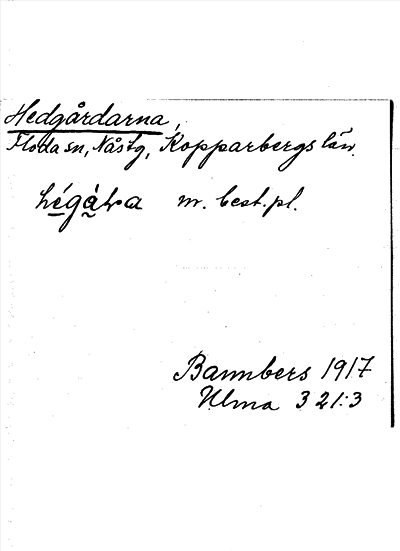 Hedgårdarna,
Floda sn, Nåstg, Kopparbergs län.
m. best. pl.
Bannbers 1917
Ulma 321:3